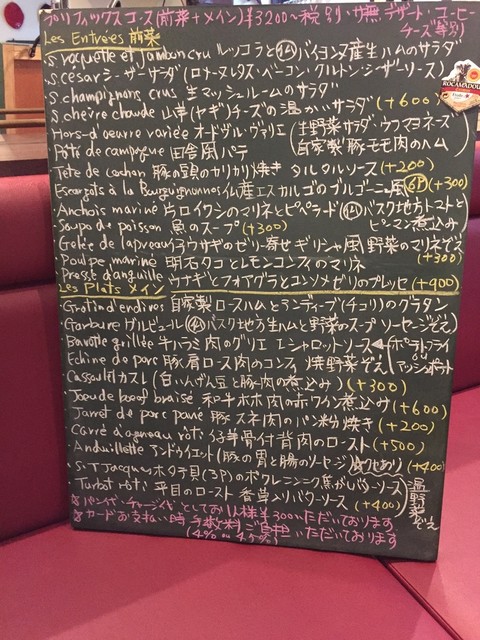 プリフィックスコース(前菜+メイン)¥3200~税別・サ無 デザート、コーヒー
チーズ等別
Les Entrées 前菜
・S. roquette et Jambon cru ルッコラと仏バイヨンヌ産生ハムのサラダ
・S. césar シーザーサラダ(ロメーヌレタス・ベーコン・クルトン・シーザーソース)
・S. champignons crus 生マッシュルームのサラダ
・S. chèvre chaude 山羊(ヤギ)チーズの温かいサラダ (+600)
・Hors-d'oeuvre variée オードヴル・ヴァリエ (生野菜サラダ・ウフマヨネーズ
自家製豚モモ肉のハム)
・Pâté de campagne 田舎風パテ
・Tête de cochon 豚の頭のカリカリ焼き タルタルソース (+200)
・Escargots à la Bourguignonnes 仏産エスカルゴのブルゴーニュ風 6P (+300)
・Anchois mariné 片口イワシのマリネとピペラード (仏バスク地方トマトと
ピーマン煮込み)
・Soupe de poisson 魚のスープ (+300)
・Gelée de lapereau 仔ウサギのゼリー寄せ ギリシャ風野菜のマリネぞえ
(+300)
・Poulpe mariné 明石タコとレモンコンフィのマリネ
・Pressé d'anguille ウナギとフォアグラとコンソメゼリのプレッセ (+400)
Les Plats メイン
・Gratin d'endives 自家製ロースハムとアンディーブ(チコリ)のグラタン
・Garbure ガルビュール (仏バスク地方生ハムと野菜のスープ ソーセージぞえ)
・Bavette grillée 牛ハラミ肉のグリエ エシャロットソース ポテトフライ
ou
アッシポテト
・Echine de porc 豚肩ロース肉のコンフィ 焼野菜ぞえ
・Cassoulet カスレ (白いんげん豆と豚肉の煮込み) (+300)
・Joue de boeuf braisé 和牛ホホ肉の赤ワイン煮込み (+600)
・Jarret de porc pané 豚スネ肉のパン粉焼き (+200)
・Carré d'agneau rôti 仔羊骨付背肉のロースト (+500)
・Andouillette アンドゥイエット (豚の胃と腸のソーセージ) クセあり (+400)
・S-T Jacques ホタテ貝(3P)のポワレ ニンニク焦がしバターソース
・Turbot rôti 平目のロースト 香草入りバターソース (+400)
温野菜ぞえ
※パン代・チャージ代としてお1人様¥300いただいております
※カードお支払い時 手数料ご負担いただいております
(4% ou 4.5%)
ROCAMADOUR